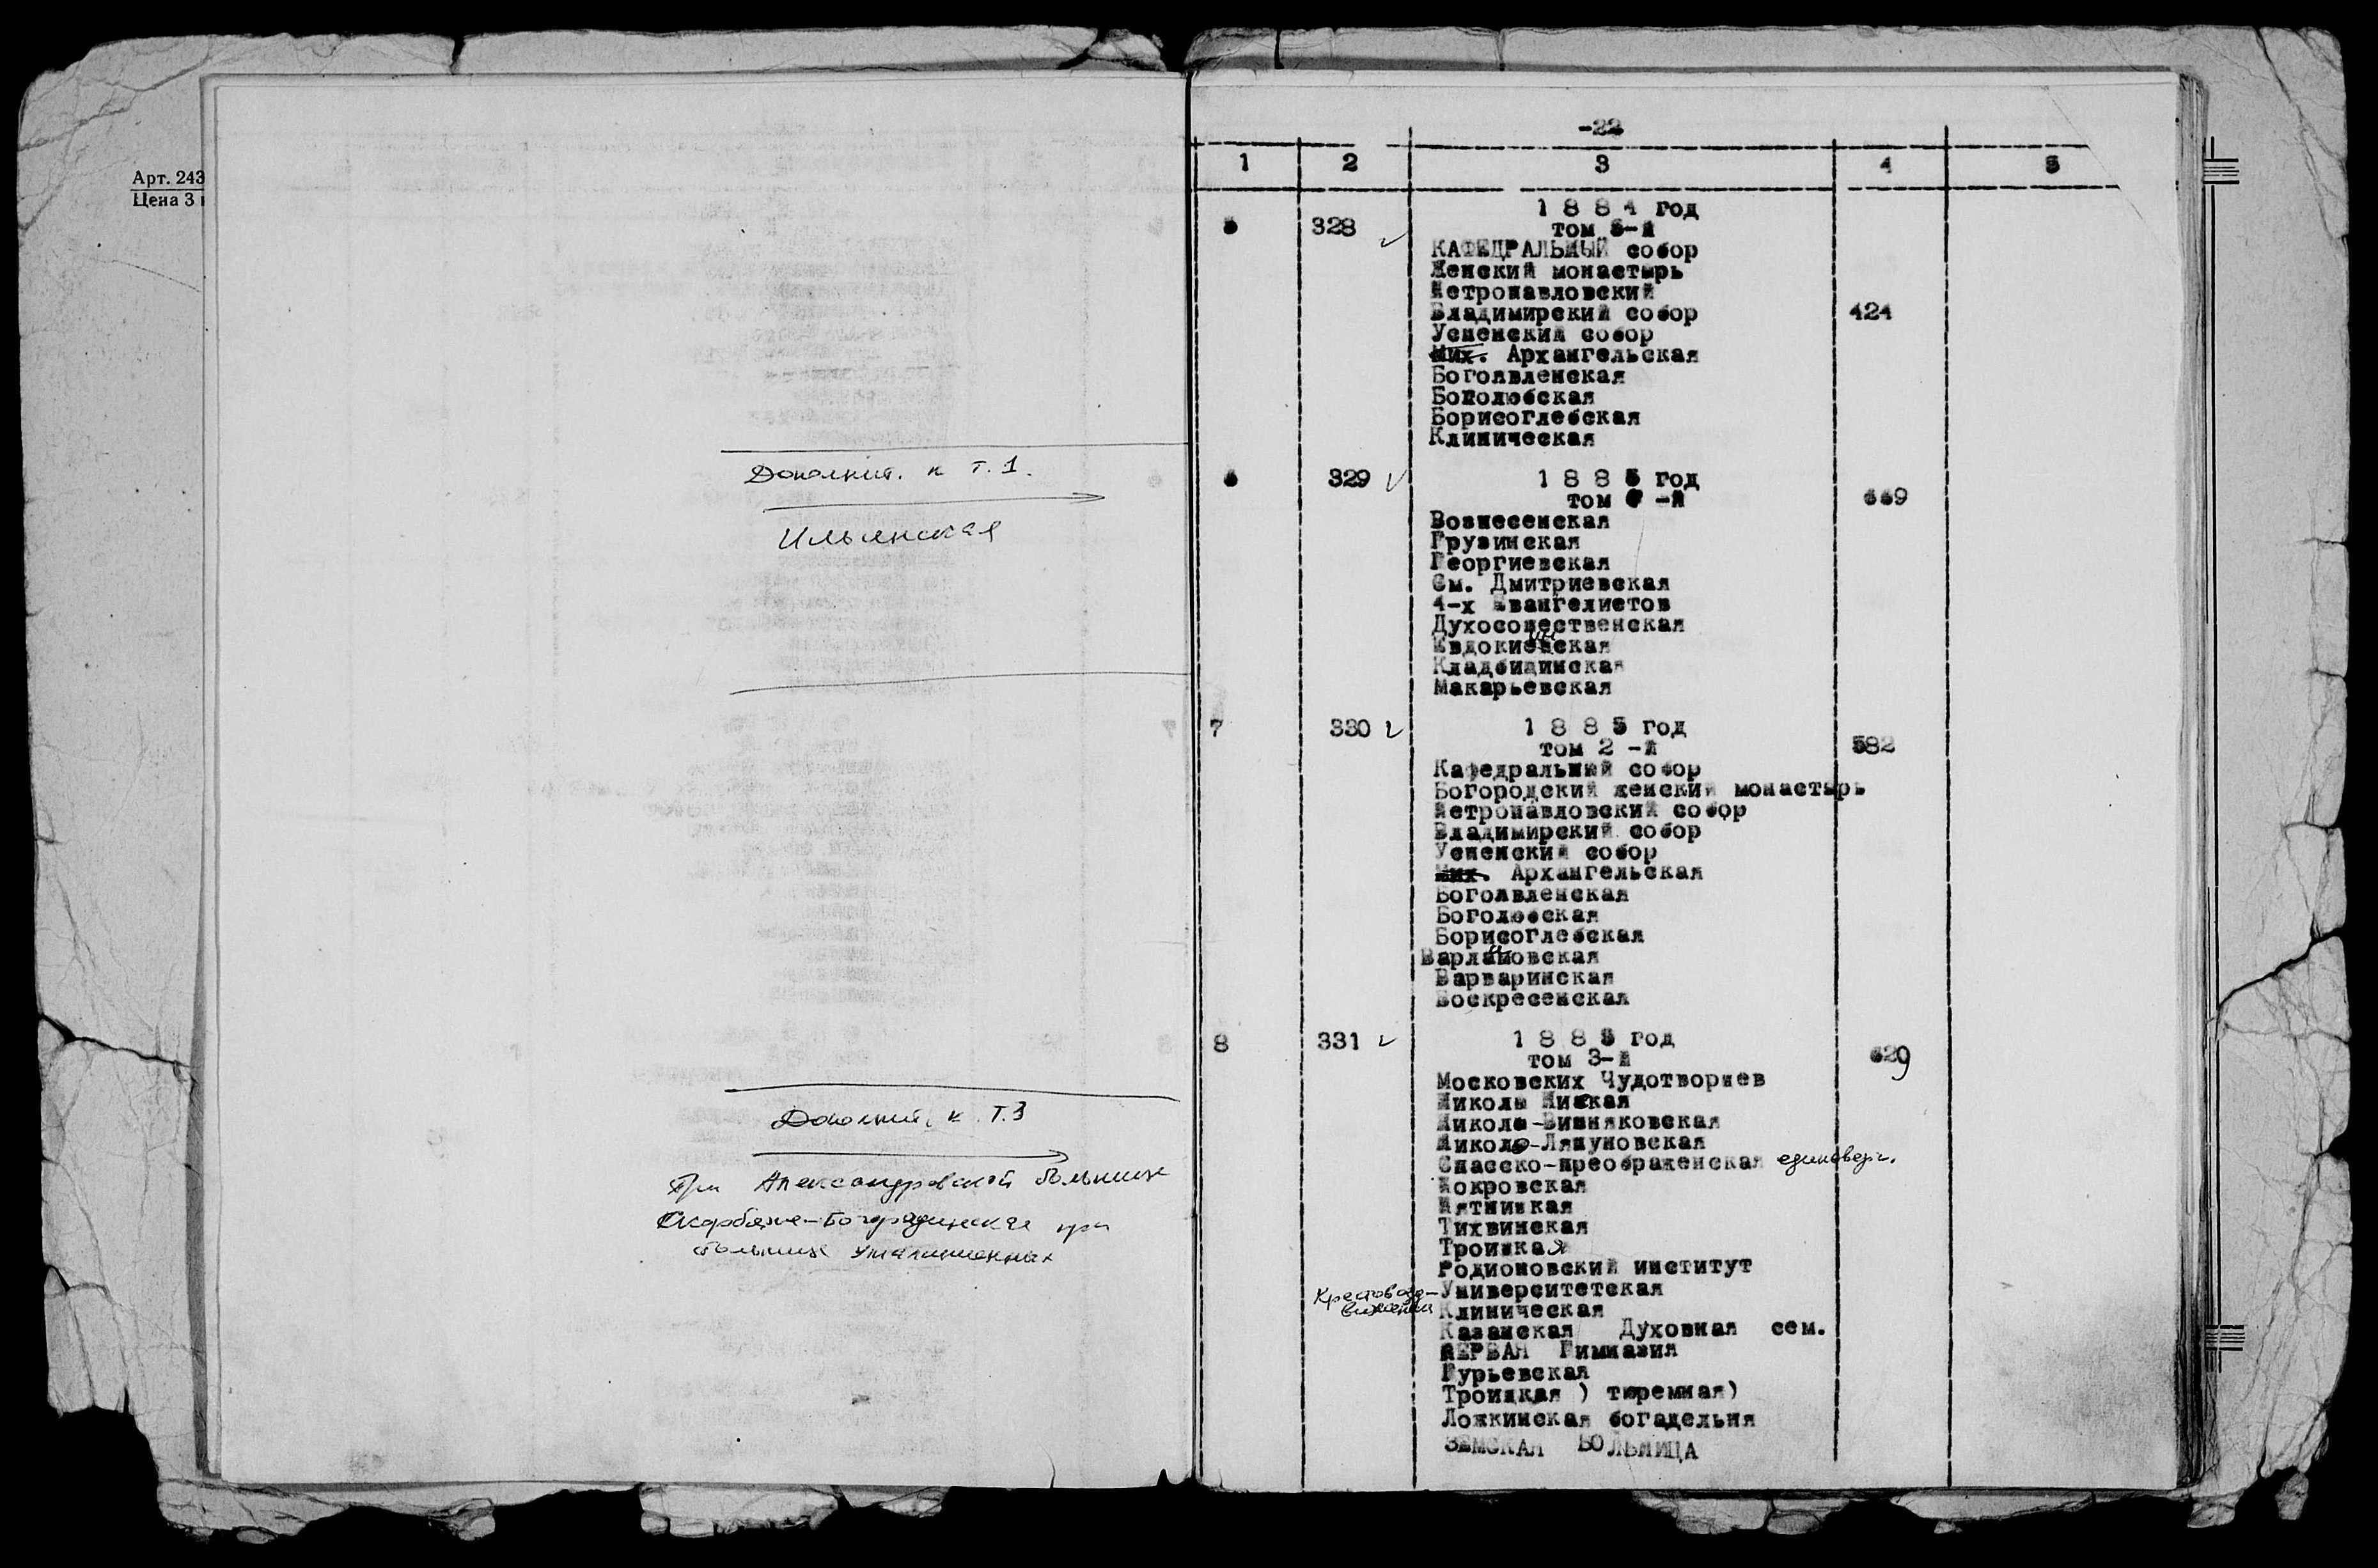 Арт. 243
Цена 3
Дополнит. к т. 1.
Ильинская
Дополнит. к т. 3
При Александровской больнице
Скорбяще-Богородицкая при
больнице умалишенных
-22
1 2 3 4 5
1 8 8 4 год
5 328 том 5-й
КАФЕДРАЛЬНЫЙ собор
Женский монастырь
Петропавловский
Владимирский собор 424
Успенский собор
Мих. Архангельская
Богоявленская
Боголюбская
Борисоглебская
Клиническая
6 329 1 8 8 5 год
том -й 669
Вознесенская
Грузинская
Георгиевская
См. Дмитриевская
4-х Евангелистов
Духосошественская
Евдокиинская
Кладбищинская
Макарьевская
7 330 1 8 8 5 год
том 2 -й 582
Кафедральный собор
Богородский женский монастырь
Петропавловский собор
Владимирский собор
Успенский собор
Мих. Архангельская
Богоявленская
Боголюбская
Борисоглебская
Варламовская
Варваринская
Воскресенская
8 331 1 8 8 5 год
том 3-й 629
Московских Чудотворцев
Николы Низкая
Николо-Вишняковская
Николо-Ляпуновская
Спасско-преображенская единоверч.
Покровская
Пятницкая
Тихвинская
Троицкая
Родионовский институт
Крестовоздвижения
Университетская
Клиническая
Казанская Духовная сем.
ПЕРВАЯ Гимназия
Гурьевская
Троицкая ) тюремная)
Ложкинская богадельня
ЗЕМСКАЯ БОЛЬНИЦА